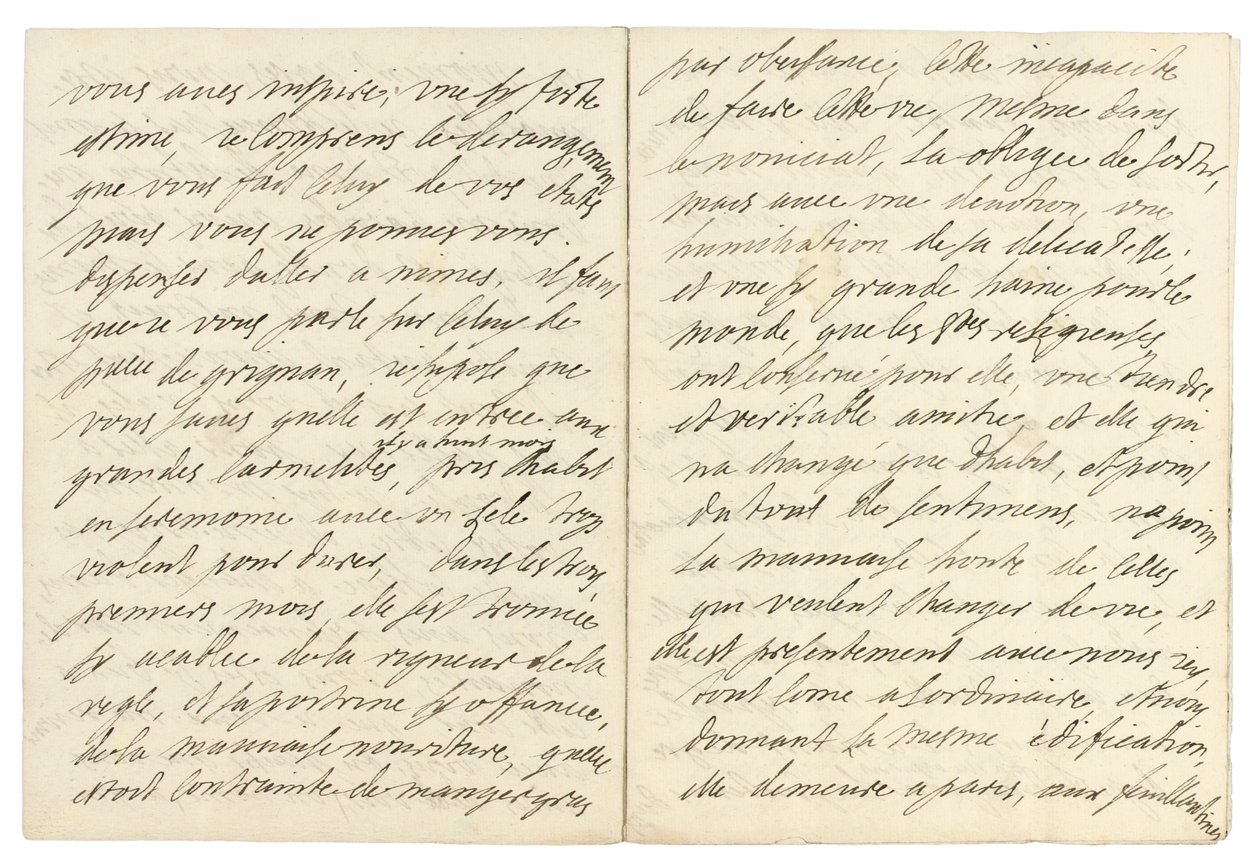 vous aues inspire, vne sy forte
estime, ie comprens le derangement
que vous fait celuy de vos etats
mais vous ne pouues vous
dispenser daller a nimes, il faut
que ie vous parle sur celuy de
de grignan, ie supose que
vous saues quelle est entree aux
il y a huit mois
grandes carmelites, pris lhabit
en seremonie auec vn zele trop
violent pour durer, dans les trois
premiers mois elle sest trouuée
sy acablee de la rigueur de la
regle, et sa poitrine sy offancee,
de la mauuaise nouriture, quelle
etoit contrainte de manger gras
par obeissance, cette incapacite
de faire cette vie, mesme dans
le noniciat, la obligee de sortir,
mais auec vne deuotion, vne
humiliation de sa delicatesse,
et vne sy grande haine pour le
monde, que les stes religieuses
ont conserué pour elle, vne tendre
et veritable amitie, et elle qui
na changé que dhabit, et point
du tout de sentimens, na point
la mauuaise honte de celles
qui veulent changer de vie, et
elle est presentement auec nous icy
tout come a lordinaire et nous
donnant la mesme édification,
elle demeure a paris, aux feuillantines